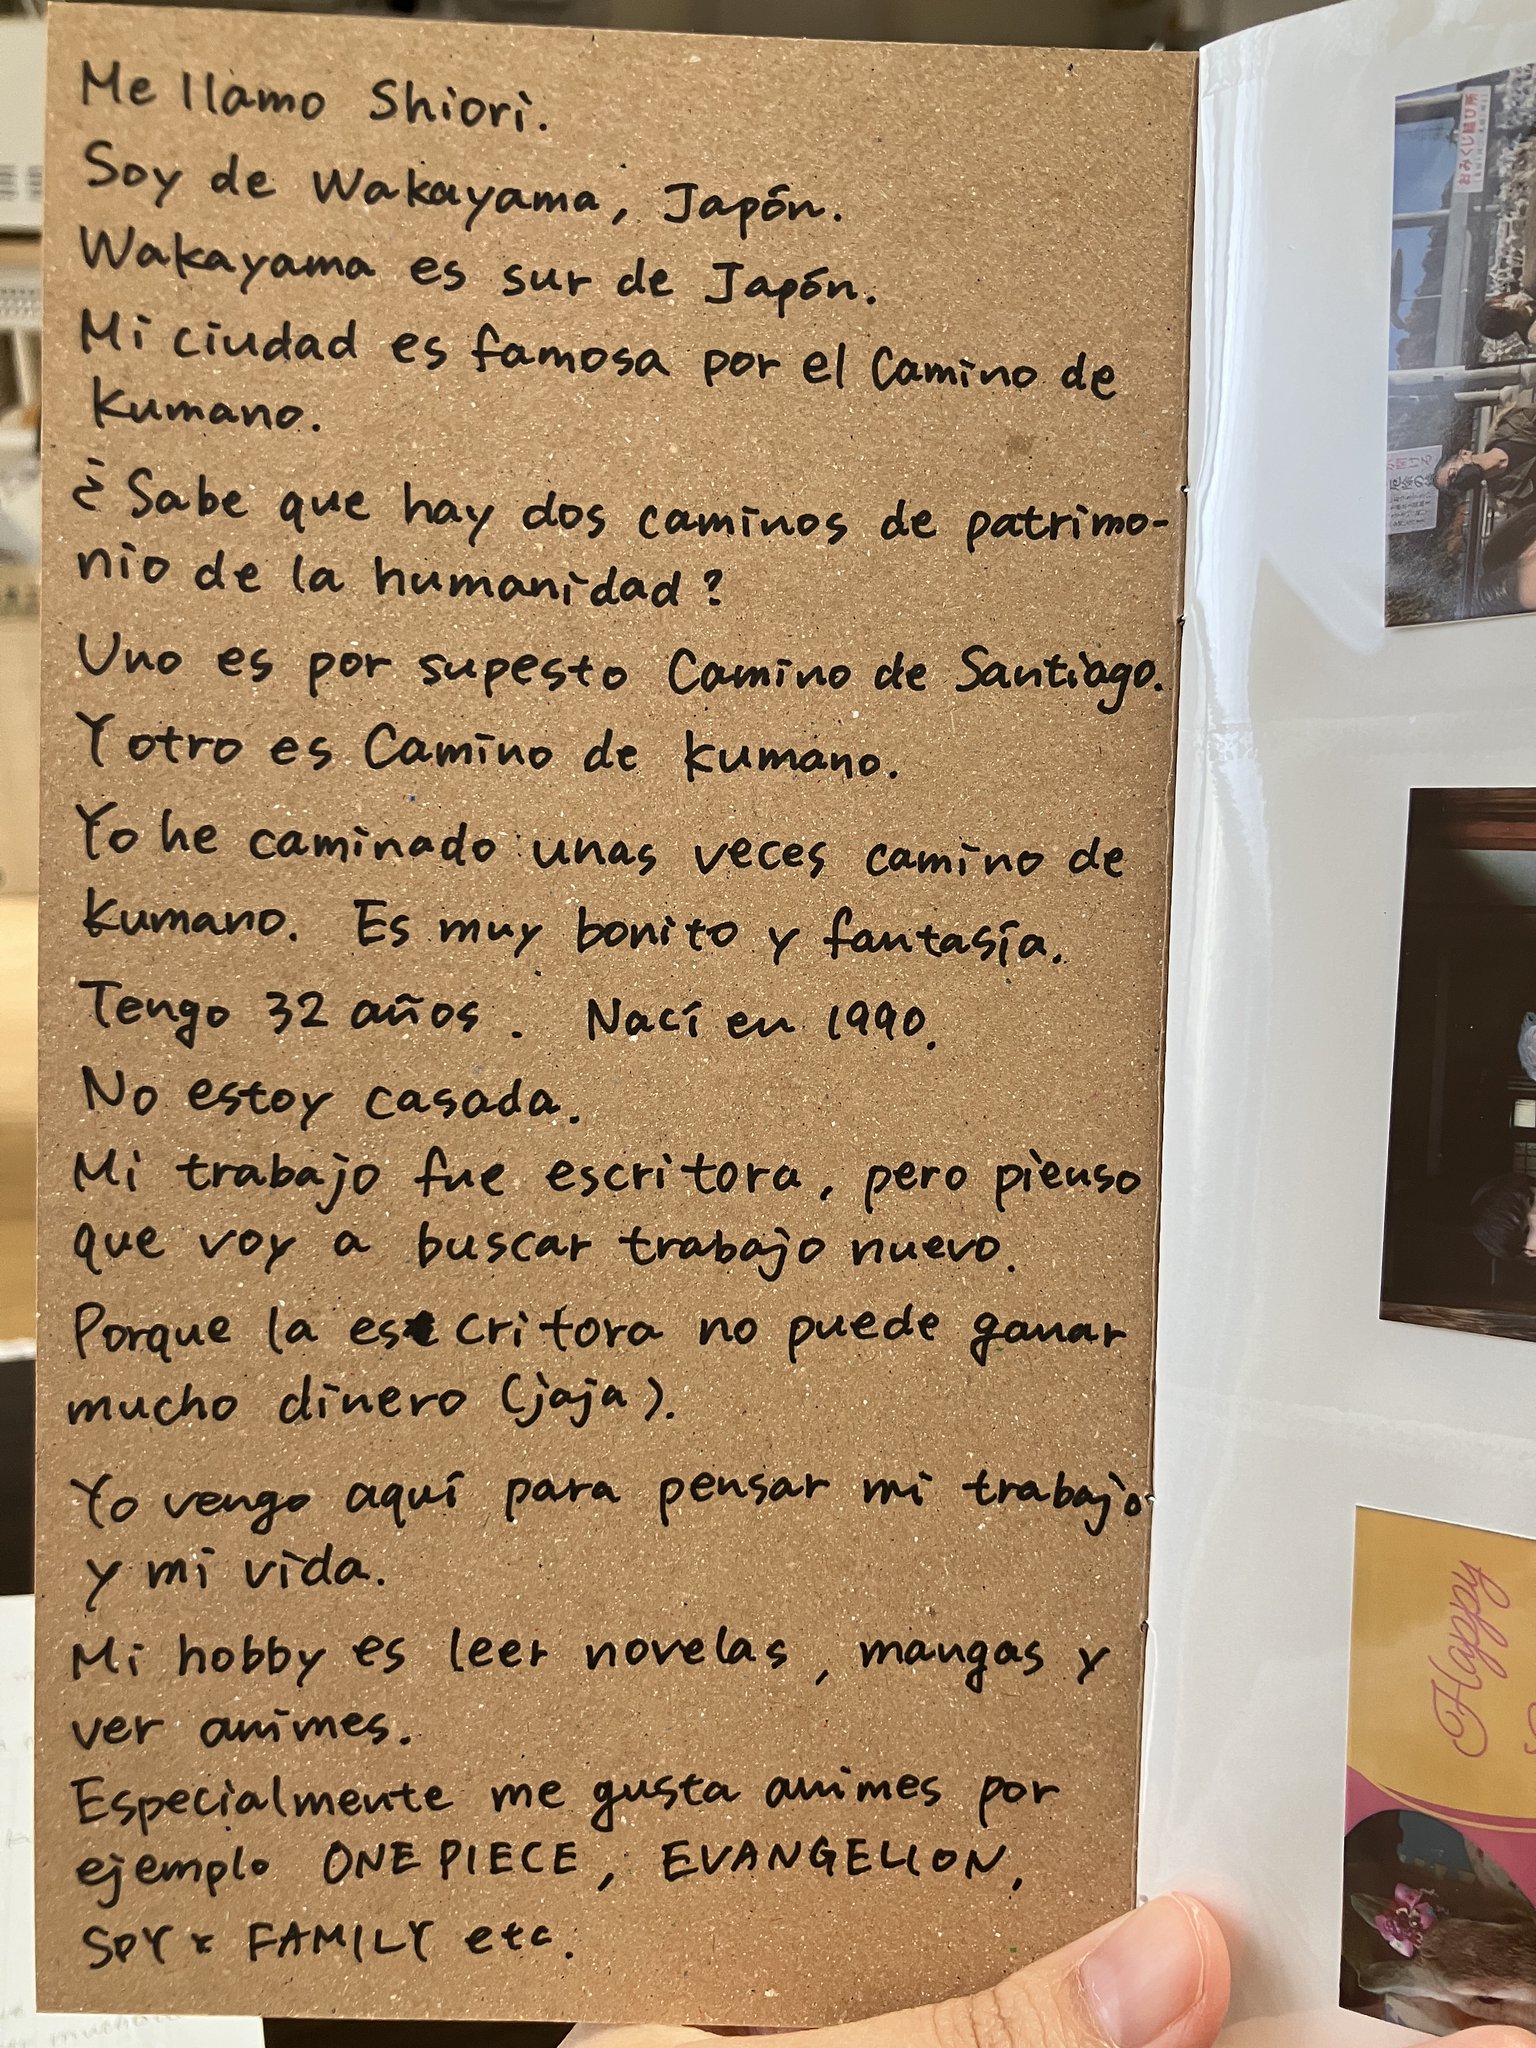 Me llamo Shiori.
Soy de Wakayama, Japón.
Wakayama es sur de Japón.
Mi ciudad es famosa por el Camino de
Kumano.
¿Sabe que hay dos caminos de patrimo-
nio de la humanidad?
Uno es por supesto Camino de Santiago.
Y otro es Camino de Kumano.
Yo he caminado unas veces camino de
Kumano. Es muy bonito y fantasía.
Tengo 32 años. Nací en 1990.
No estoy casada.
Mi trabajo fue escritora, pero pienso
que voy a buscar trabajo nuevo.
Porque la escritora no puede ganar
mucho dinero (jaja).
Yo vengo aquí para pensar mi trabajo
y mi vida.
Mi hobby es leer novelas, mangas y
ver animes.
Especialmente me gusta animes por
ejemplo ONE PIECE, EVANGELION,
SPY x FAMILY etc.
おみくじ結び所
Happy